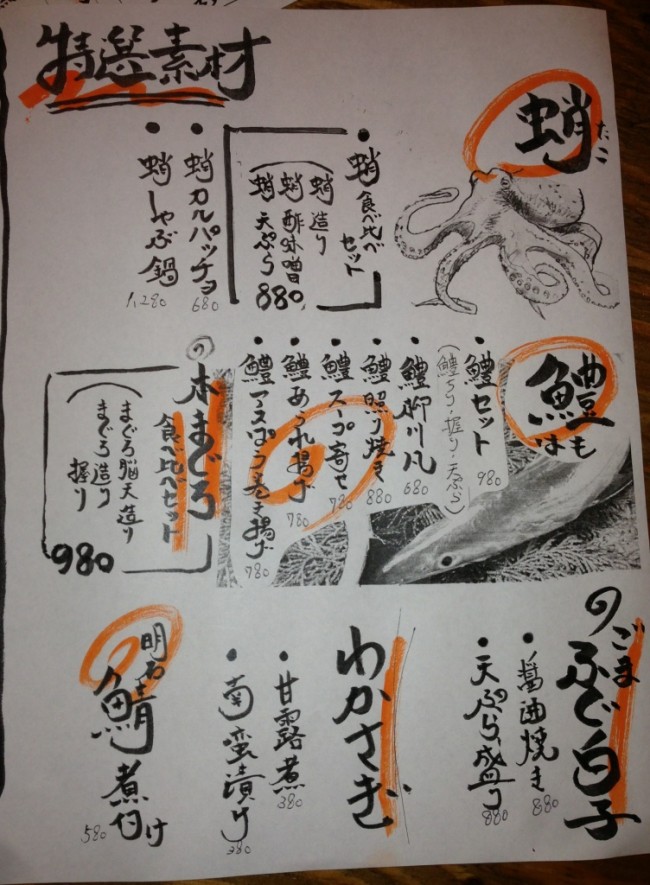 特選素材
蛸
たこ
蛸食べ比べ
セット
蛸造り
蛸酢味噌
蛸天ぷら
880
蛸カルパッチョ
680
蛸しゃぶ鍋
1,280
鱧
はも
鱧セット
980
(鱧ちり・握り・天ぷら)
鱧柳川風
680
鱧照り焼き
880
鱧スープ寄せ
780
鱧あられ揚げ
780
780
本まぐろ
食べ比べセット
まぐろ脳天造り
まぐろ造り
握り
980
ごまふぐ白子
醤油焼き
880
天ぷら盛り
880
わかさぎ
甘露煮
380
南蛮漬け
380
明石鯖煮付け
580